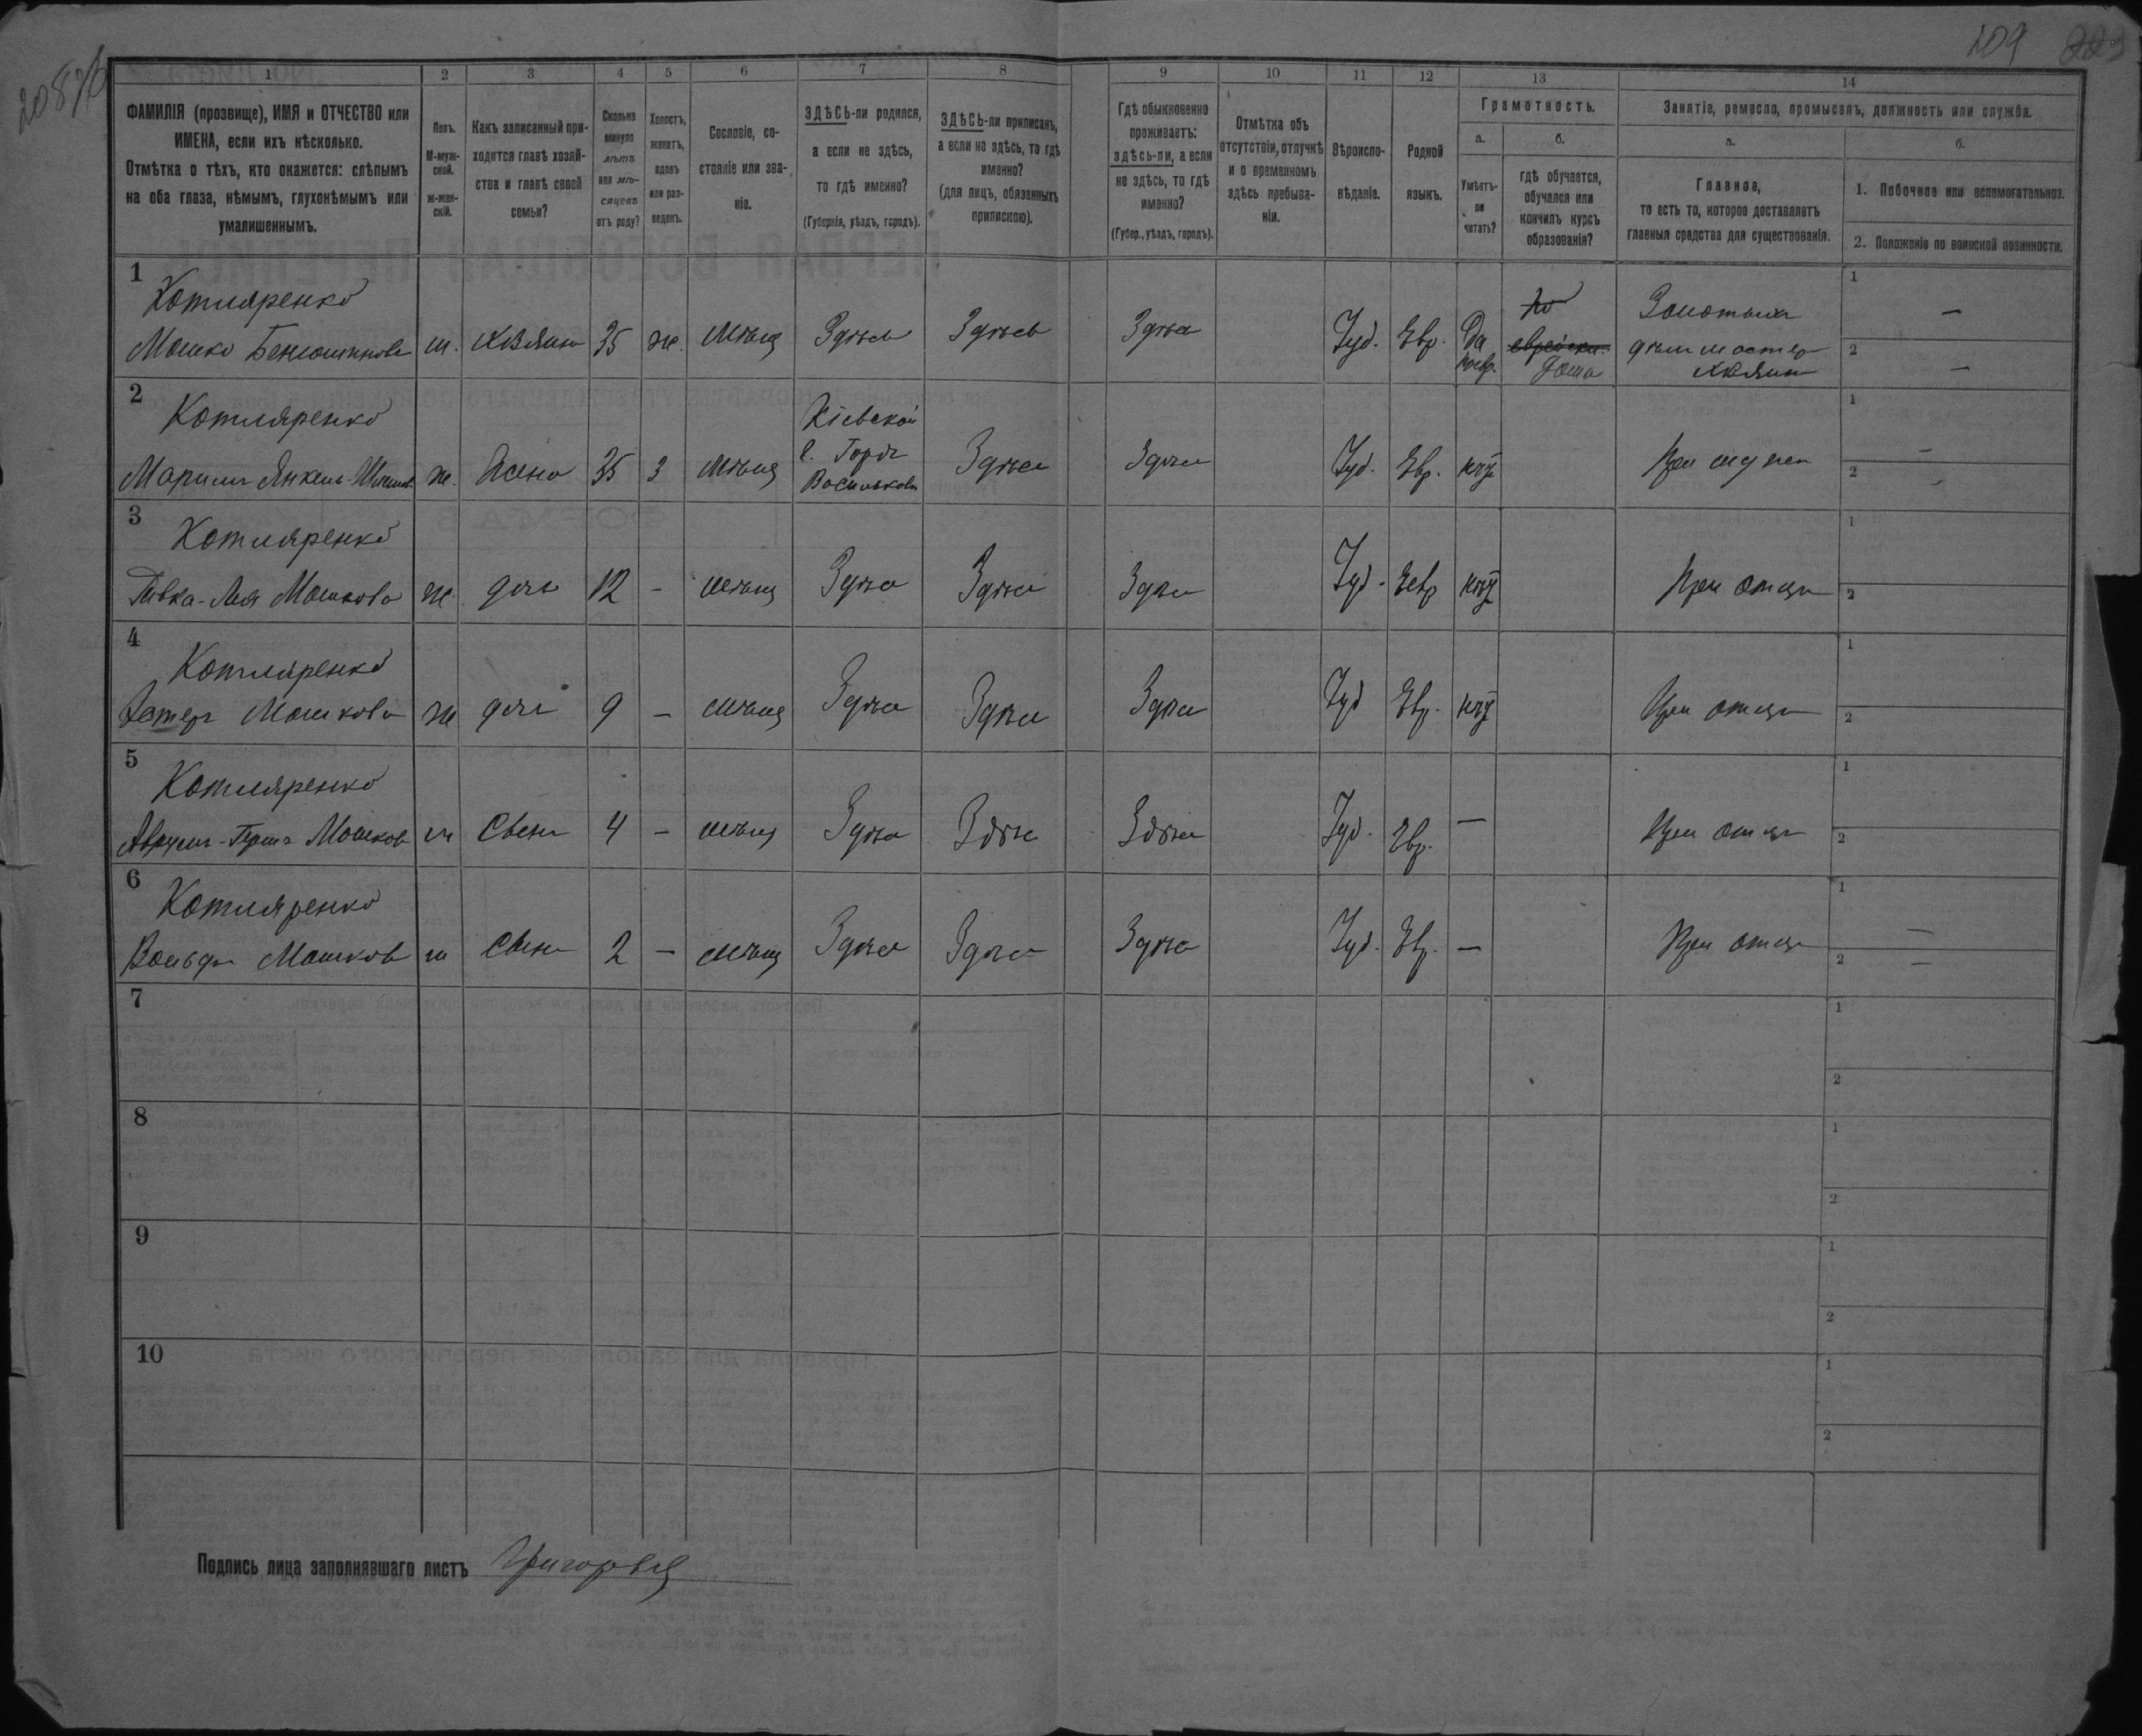 109
1 2 3 4 5 6 7 8 9 10 11 12 13 14
ФАМИЛІЯ (прозвище), ИМЯ и ОТЧЕСТВО или
ИМЕНА, если ихъ нѣсколько.
Отмѣтка о тѣхъ, кто окажется: слѣпымъ
на оба глаза, нѣмымъ, глухонѣмымъ или
умалишеннымъ.
Полъ.
М-муж-
ской.
ж-жен-
скій.
Какъ записанный при-
ходится главѣ хозяй-
ства и главѣ своей
семьи?
Сколько
минуло
лѣтъ
или мѣ-
сяцевъ
отъ роду?
Холостъ,
женатъ,
вдовъ
или раз-
веденъ.
Сословіе, со-
стояніе или зва-
ніе.
ЗДѢСЬ-ли родился,
а если не здѣсь,
то гдѣ именно?
(Губернія, уѣздъ, городъ).
ЗДѢСЬ-ли приписанъ,
а если не здѣсь, то гдѣ
именно?
(для лицъ, обязанныхъ
припискою).
Гдѣ обыкновенно
проживаетъ:
здѣсь-ли, а если
не здѣсь, то гдѣ
именно?
(Губер., уѣздъ, городъ).
Отмѣтка объ
отсутствіи, отлучкѣ
и о временномъ
здѣсь пребыва-
ніи.
Вѣроиспо-
вѣданіе.
Родной
языкъ.
Грамотность.
а.
Умѣетъ-
ли
читать?
б.
гдѣ обучается,
обучался или
кончилъ курсъ
образованія?
Занятіе, ремесло, промыселъ, должность или служба.
а.
Главное,
то есть то, которое доставляетъ
главныя средства для существованія.
б.
1. Побочное или вспомогательное.
2. Положеніе по воинской повинности.
1
Котляренко
Мошко м. хозяинъ 35 ж. мѣщ Здѣсь Здѣсь Здѣсь Іуд. Евр. Да
по евр.
по
еврейски
дома
хозяинъ
1 —
2 —
2
Котляренко
ж. жена 35 з мѣщ
Кіевской
г. Горд.
Васильковъ
Здѣсь Здѣсь Іуд. Евр. нѣт При мужѣ
1 —
2 —
3
Котляренко
Ривка-Лея Мошкова ж дочь 12 - мѣщ Здѣсь Здѣсь Здѣсь Іуд. Евр нѣт При отцѣ
1
2
4
Котляренко
Эстеръ Мошкова ж дочь 9 — мѣщ Здѣсь Здѣсь Здѣсь Іуд Евр. нѣт При отцѣ
1
2
5
Котляренко
Аврумъ-Гершъ Мошковъ м Сынъ 4 — мѣщ Здѣсь Здѣсь Здѣсь Іуд. Евр. — При отцѣ
1
2
6
Котляренко
Вольфъ Мошковъ м Сынъ 2 — мѣщ Здѣсь Здѣсь Здѣсь Іуд. Евр. — При отцѣ
1 —
2 —
7
1
2
8
1
2
9
1
2
10
1
2
Подпись лица заполнявшаго листъ